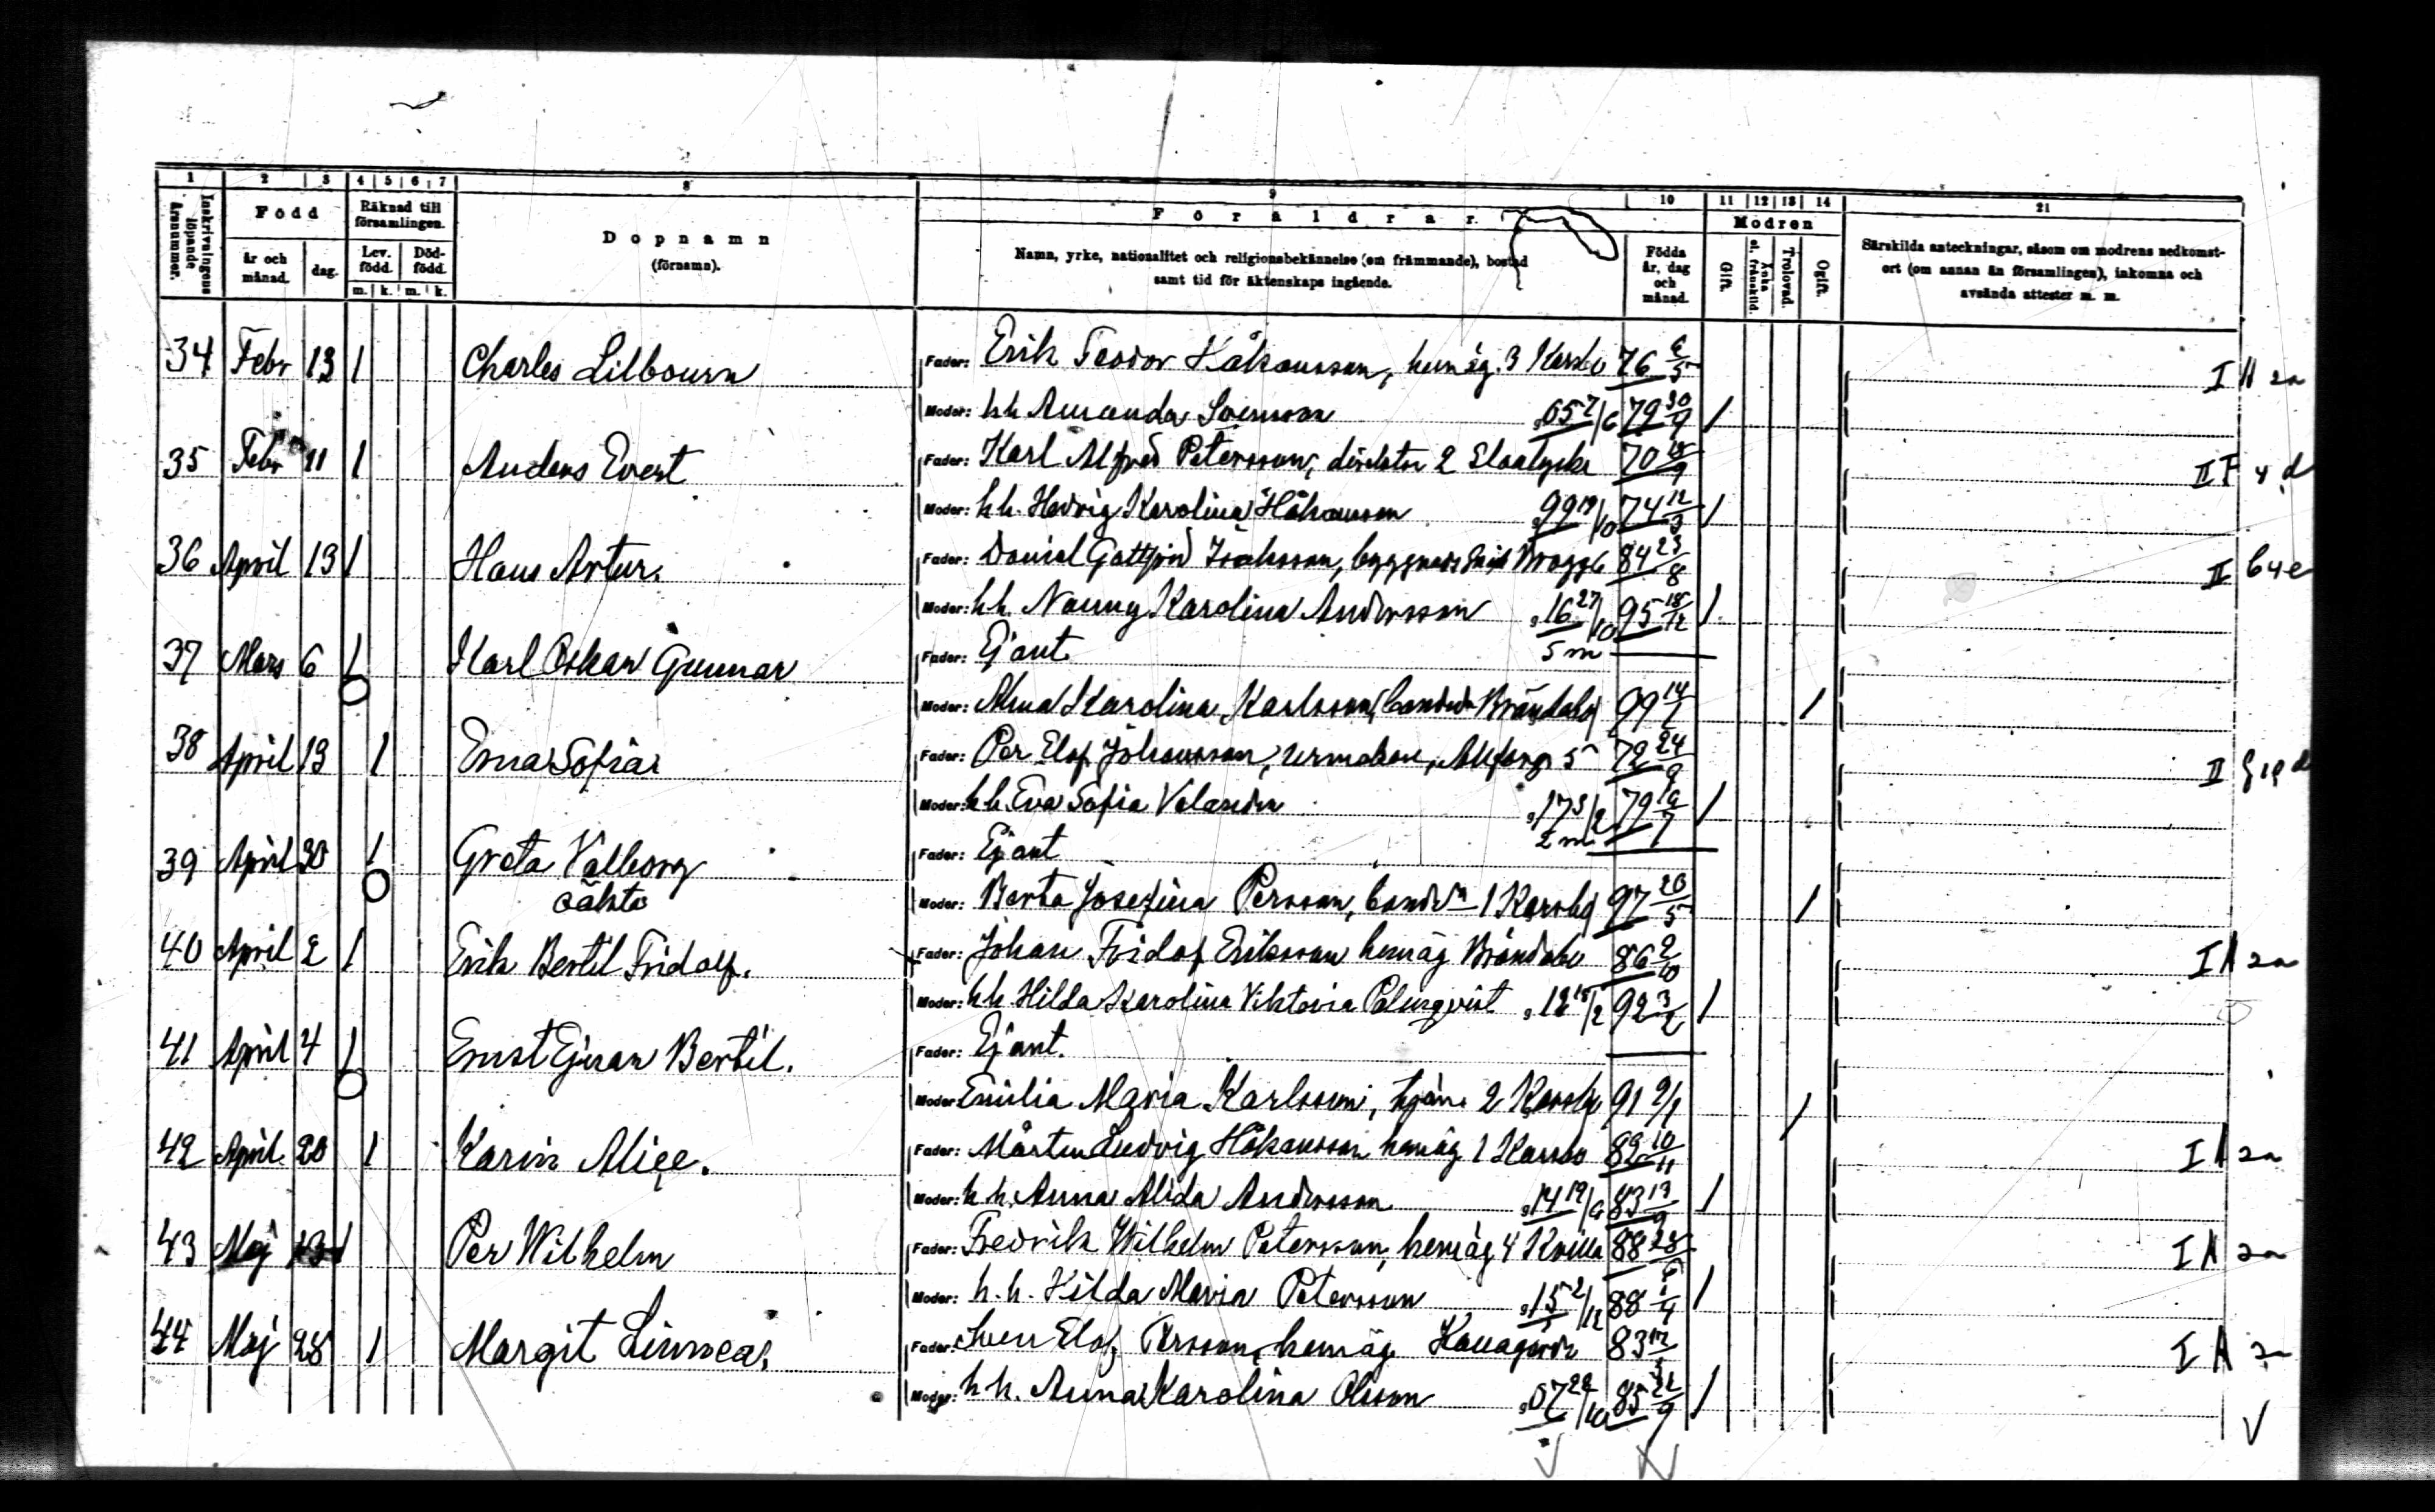 1 2 3 4 5 6 7 8 9 10 11 12 13 14 21
Inskrivningens löpande årsnummer.
Född
år och månad. dag.
Räknad till församlingen.
Lev. född. Död-född.
m. k. m. k.
Dopnamn
(förnamn).
Föräldrar.
Namn, yrke, nationalitet och religionsbekännelse (om främmande), bostad
samt tid för äktenskaps ingående.
Födda år, dag och månad.
Modren
Gift. Änka el. frånskild. Trolovad. Ogift.
Särskilda anteckningar, såsom om modrens nedkomst-
ort (om annan än församlingen), inkomna och
avsända attester m. m.
34 Febr 13 1 Charles Lilbourn Fader: Erik Teodor Håkansson, hemäg. 3 76 6/5 I A 2a
Moder: h h Amanda Svensson 05 7/6 79 30/9 1
35 Febr 11 1 Anders Evert Fader: Karl Alfred Petersson, direktör 2 70 18/9 II F 4 d
Moder: h h. Hedvig Karolina Håkansson 99 19/10 74 12/3 1
36 April 13 1 Hans Artur. Fader: Daniel Gottfrid Isaksson, 84 23/8 II 6 4 e
Moder: h h. Nanny Karolina Andersson 16 27/10 95 18/12 1
5 m
37 Mars 6 1 Karl Oskar Gunnar Fader: Ej ant.
Moder: Alma Karolina Karlsson, 99 14/1 1
38 April 13 1 Erna Sofia Fader: Per Elof Johansson, urmakare, 5 72 24/9 II
Moder: h h. Eva Sofia 17 3/2 79 19/7 1
2 m
39 April 30 1 Greta Valborg Fader: Ej ant
oäkta Moder: Berta Josefina Persson, 1 97 20/5 1
40 April 2 1 Erik Bertil Fridolf. Fader: Johan Fridolf Eriksson hemäg Brändabo 86 2/10 I A 2a
Moder: h h. Hilda Karolina Viktoria Palmqvist 12 18/2 92 3/2 1
41 April 4 1 Ernst Ejnar Bertil. Fader: Ej ant.
Moder: Emilia Maria Karlsson, tjän. 2 91 9/1 1
42 April 20 1 Karin Alice. Fader: Mårten Ludvig Håkansson hemäg 1 82 10/11 I A 2a
Moder: h h. Anna Alida Andersson 14 19/6 83 13/9 1
43 Maj 13 1 Per Wilhelm Fader: Fredrik Wilhelm Petersson, hemäg 4 88 28/6 I A 2a
Moder: h. h. Hilda Maria Petersson 15 2/12 88 1/4 1
44 Maj 28 1 Margit Linnea. Fader: Sven Elof Persson, hemäg 83 I A 2a
Moder: h h. Anna Karolina Olsson 07 22/10 85 22/9 1